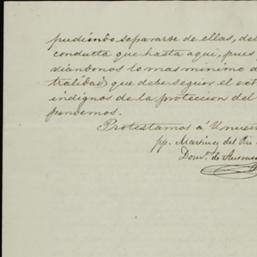 pudiendo separarse de ellas, de
conducta que hasta aqui, pues
diandonos lo mas minimo d
tralidad, que debe seguir el est
indignos de la proteccion del
ponemos.
Protestamos á V. nues
pp. Martinez del Rio
Dom.º de Ansoa